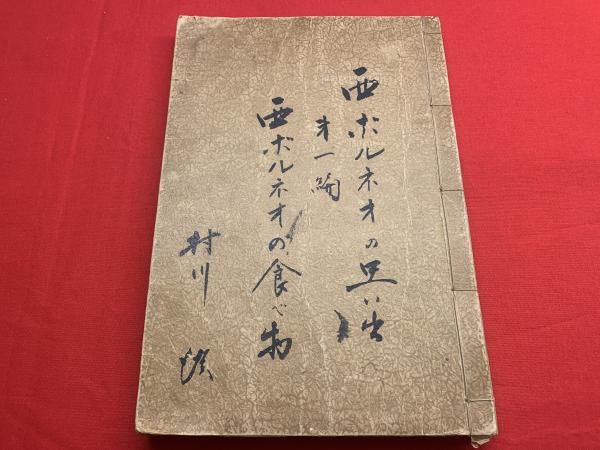 西ボルネオの思い出
才一編
西ボルネオの食べ物
村川